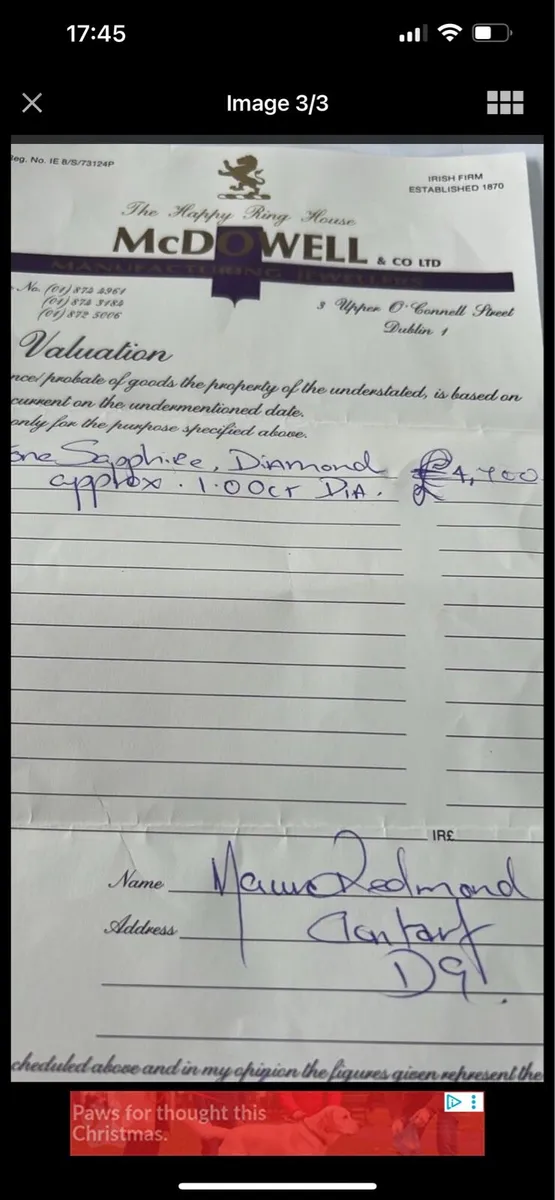 17:45
Image 3/3
Reg. No. IE B/S/73124P
IRISH FIRM
ESTABLISHED 1870
The Happy Ring House
McDOWELL & CO LTD
MANUFACTURING JEWELLERS
No. (01) 874 4961
(01) 874 3184
(01) 872 5006
3 Upper O'Connell Street
Dublin 1
Valuation
nce/probate of goods the property of the understated, is based on
current on the undermentioned date.
only for the purpose specified above.
One Sapphire, Diamond £4,700
approx. 1.00ct DIA.
IR£
Name Redmond
Address Clontarf
D9.
cheduled above and in my opinion the figures given represent the
Paws for thought this
Christmas.